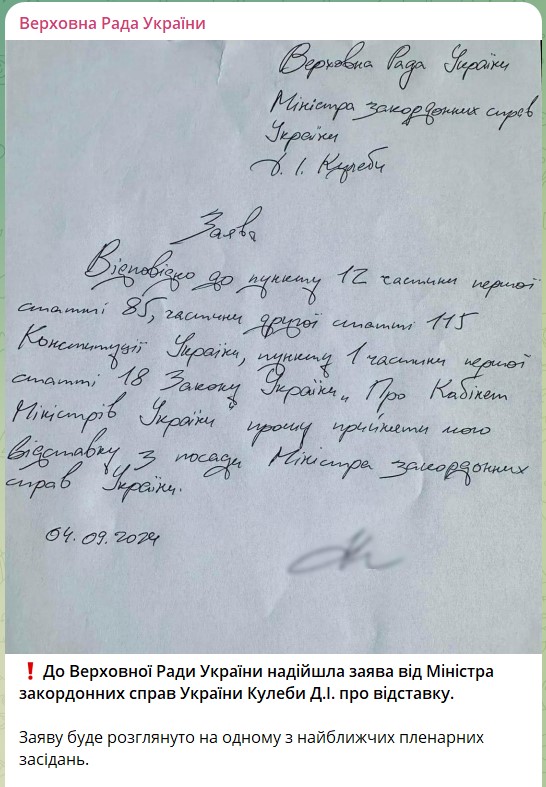 Верховна Рада України
Верховна Рада України
Міністра закордонних справ
України
Д. І. Кулеби
Заява
Відповідно до пункту 12 частини першої
статті 85, частини другої статті 115
Конституції України, пункту 1 частини першої
статті 18 Закону України „Про Кабінет
Міністрів України прошу прийняти мою
відставку з посади Міністра закордонних
справ України.
04.09.2024
❗ До Верховної Ради України надійшла заява від Міністра
закордонних справ України Кулеби Д.І. про відставку.
Заяву буде розглянуто на одному з найближчих пленарних
засідань.